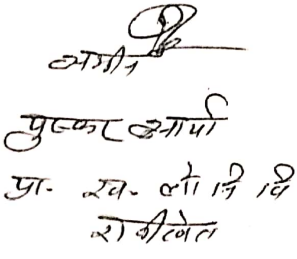 अमीन
पुष्कर आर्या
प्रा. ख. लो नि वि
रानीखेत